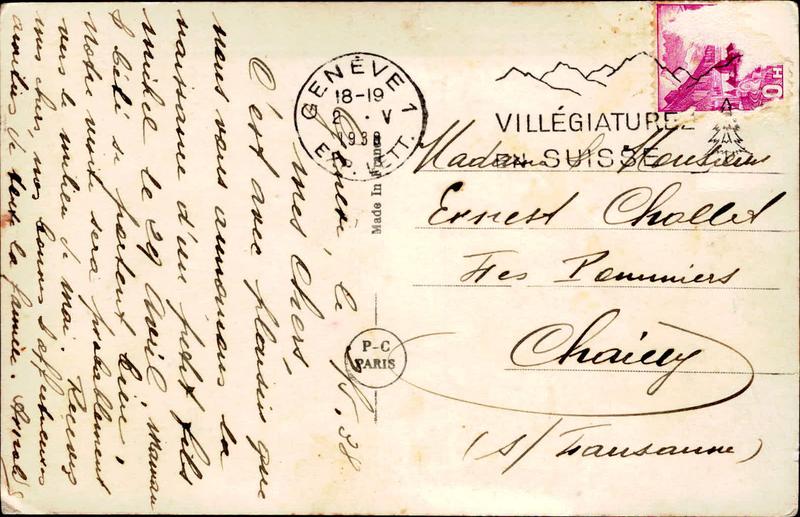 Genève, le 1/5.38
Mes Chers,
C'est avec plaisir que
nous vous annonçons la
naissance d'un petit fils
Michel le 29 Avril. Maman
& bébé se portent bien.
Notre visite sera probablement
vers le milieu de mai. Recevez
mes chers, nos bonnes & affectueuses
amitiés de toute la famille.
GENÈVE 1
18-19
2 . V
1938
EXP. LETT.
VILLÉGIATUREZ
EN SUISSE
Made in France
P-C
PARIS
Madame & Monsieur
Ernest Chollet
Les Pommiers
Chailly
(s/Lausanne)